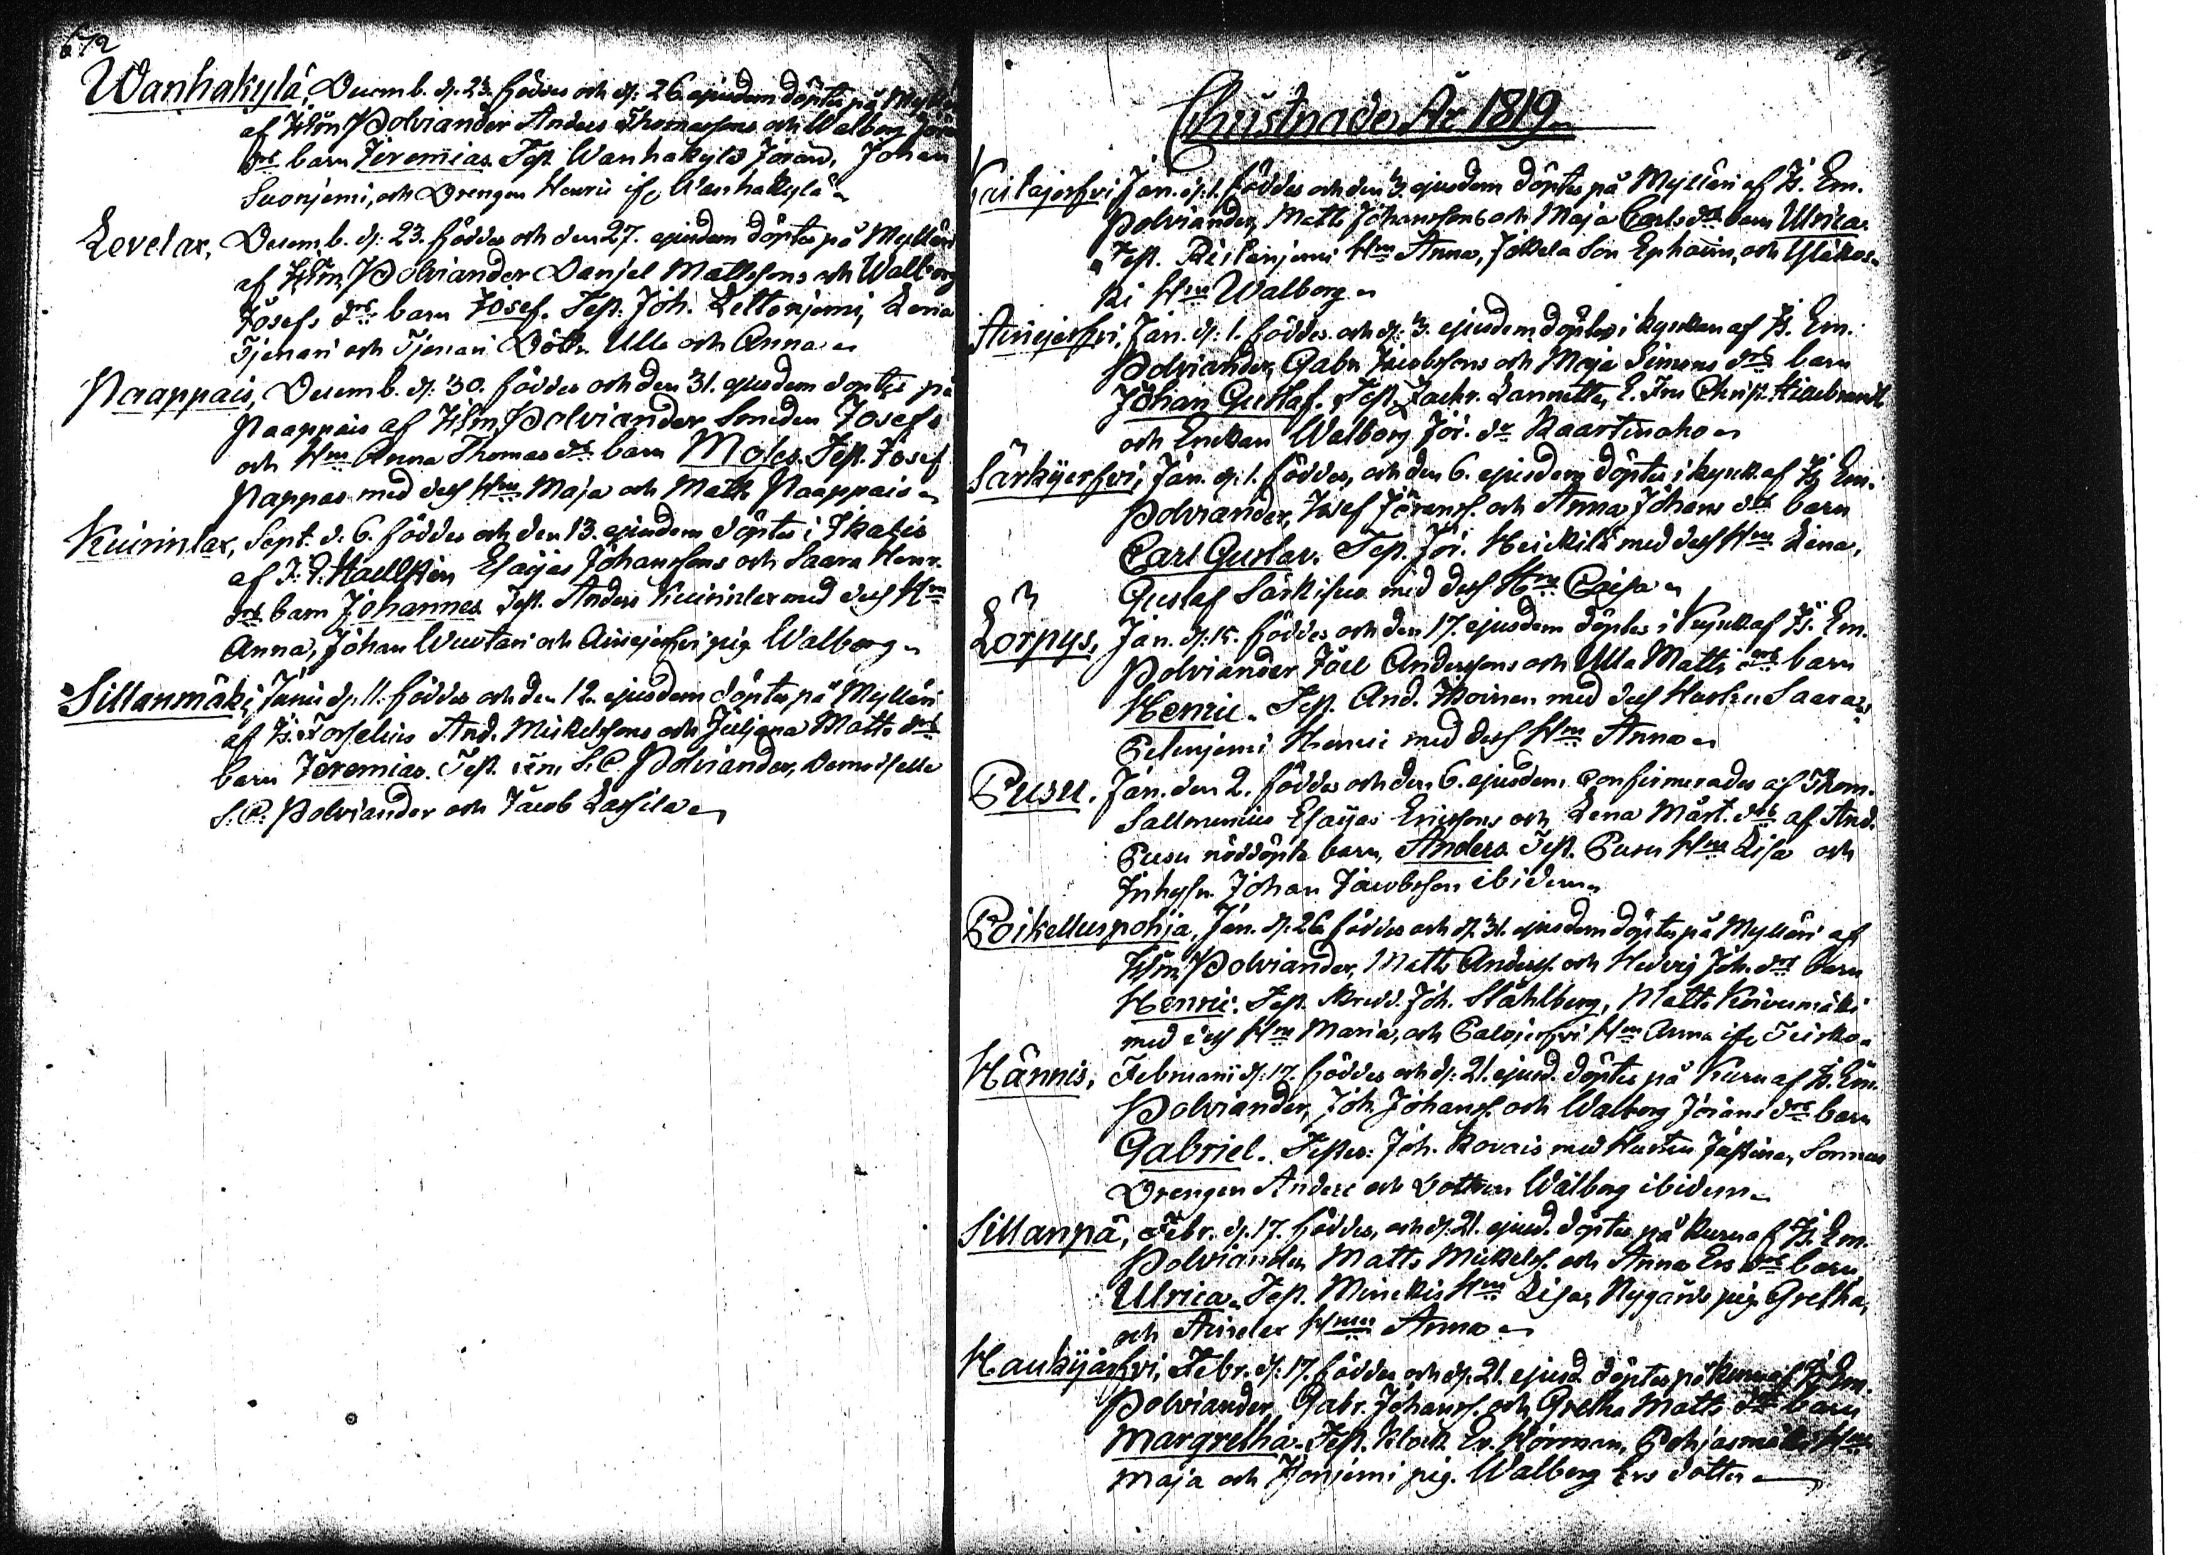 672
Wanhakylä, Decemb. d. 23. föddes och d: 26 ejusdem döptes på Mylläri
af Polviander Anders Thomassons och Walborg
drs barn Jeremias Test. Wanhakylä Jöran, Johan
Suonjemi, och Drengen Henric ifr. Wanhakylä
Levelax, Decemb. d: 23. föddes och den 27. ejusdem döptes på Mylläri
af Polviander Danjel Mattssons och Walborg
Josefs drs barn Josef. Test. Joh. Lettonjemi, Lena
Tjenari och Tjenari Döttr. Ulla och Anna
Paappais, Decemb. d. 30. föddes och den 31. ejusdem döptes på
Paappais af Polviander Smeden Josefs
och Hru Anna Thomas drs barn Moses. Test. Josef
Pappas med dess Hru Maja och Matts Paappais
Kuirinlax, Sept. d. 6. föddes och den 13. ejusdem döptes i Ikalis
af Haellsten Esaijas Johanssons och Saara Henr.
drs barn Johannes Test. Anders Kuirinlax med dess Hru
Anna, Johan och Aurejerfvi pig. Walborg
Sillanmäki Junii d. 11. föddes och den 12. ejusdem döptes på Mylläri
af And. Mickelssons och Juljana Matts drs
barn Jeremias. Test. S. C. Polviander, Demoiselle
S. C. Polviander och Jacob Lassila
Christnades År 1819
Jan. d. 1. föddes och den 3 ejusdem döptes på Mylläri af Em.
Polviander, Matts Johanssons och Maja Carls drs barn Ulrica.
Test. Hru Anna, Jokela Son Ephaim, och Yläkos
ki Hru Walborg
Aurejerfvi, Jan. d: 1. föddes och d: 3. ejusdem döptes i kyrckan af Em.
Polviander, Gabr. Jacobssons och Maja Simons drs barn
Johan Gustaf. Test. Zachr. Lannetta, E. Fru
och Enckan Walborg Jör. dr Kaartinaho
Särkijerfvi, Jan. d. 1. föddes, och den 6. ejusdem döptes i kyrck. af Em.
Polviander, Josef Jöranss. och Anna Johans drs barn
Carl Gustav. Test. Jör. Heickilä med dess Hru Lena,
Gustaf med dess Hru Caisa
Lörpys, Jan. d: 15. föddes och den 17. ejusdem döptes i Kyrck. af Em.
Polviander Joel Anderssons och Ulla Matts drs barn
Henric. Test. And. med dess Hustru Saara,
Henric med dess Hru Anna
Pusu. Jan. den 2. föddes och den 6. ejusdem Confirmerades af Thom.
Sallmenius Esaijas Ericssons och Lena Mårt. drs af And.
Pusu nöddöpte barn, Anders Test. Pusu Hru Lisa och
Johan Jacobsson ibidem
Poikelluspohja, Jan. d. 26 föddes och d. 31. ejusdem döptes på Mylläri af
Polviander, Matts Anderss. och Hedvig Joh. drs barn
Henric. Test. Joh. Ståhlberg, Matts Koivumäki
med dess Hru Maria, och Palojerfvi Hru Anna ifr. Teisko
Hännis, Februarii d: 17. föddes och d: 21. ejusd. döptes på Kuru af Em.
Polviander, Joh. Johanss. och Walborg Jörans drs barn
Gabriel. Testes: Joh. med Hustru Justina, Sonnen
Drengen Anders och Dottren Walborg ibidem
Sillanpä, Febr. d. 17. föddes, och d. 21. ejusd. döptes på Kuru af Em.
Polviander Matts Mickelss. och Anna Ers drs barn
Ulrica. Test. Hru Lisa, Nygårds pig. Gretha,
och Aurelax Hru Anna
Haukijärfvi, Febr. d: 17. föddes och d. 21. ejusd. döptes på Kuru af Em.
Polviander, Gabr. Johanss. och Gretha Matts drs barn
Margretha. Test. Klock. Er. Hörman, Pohjasmäki Hru
Maja och pig. Walborg Ers dotter